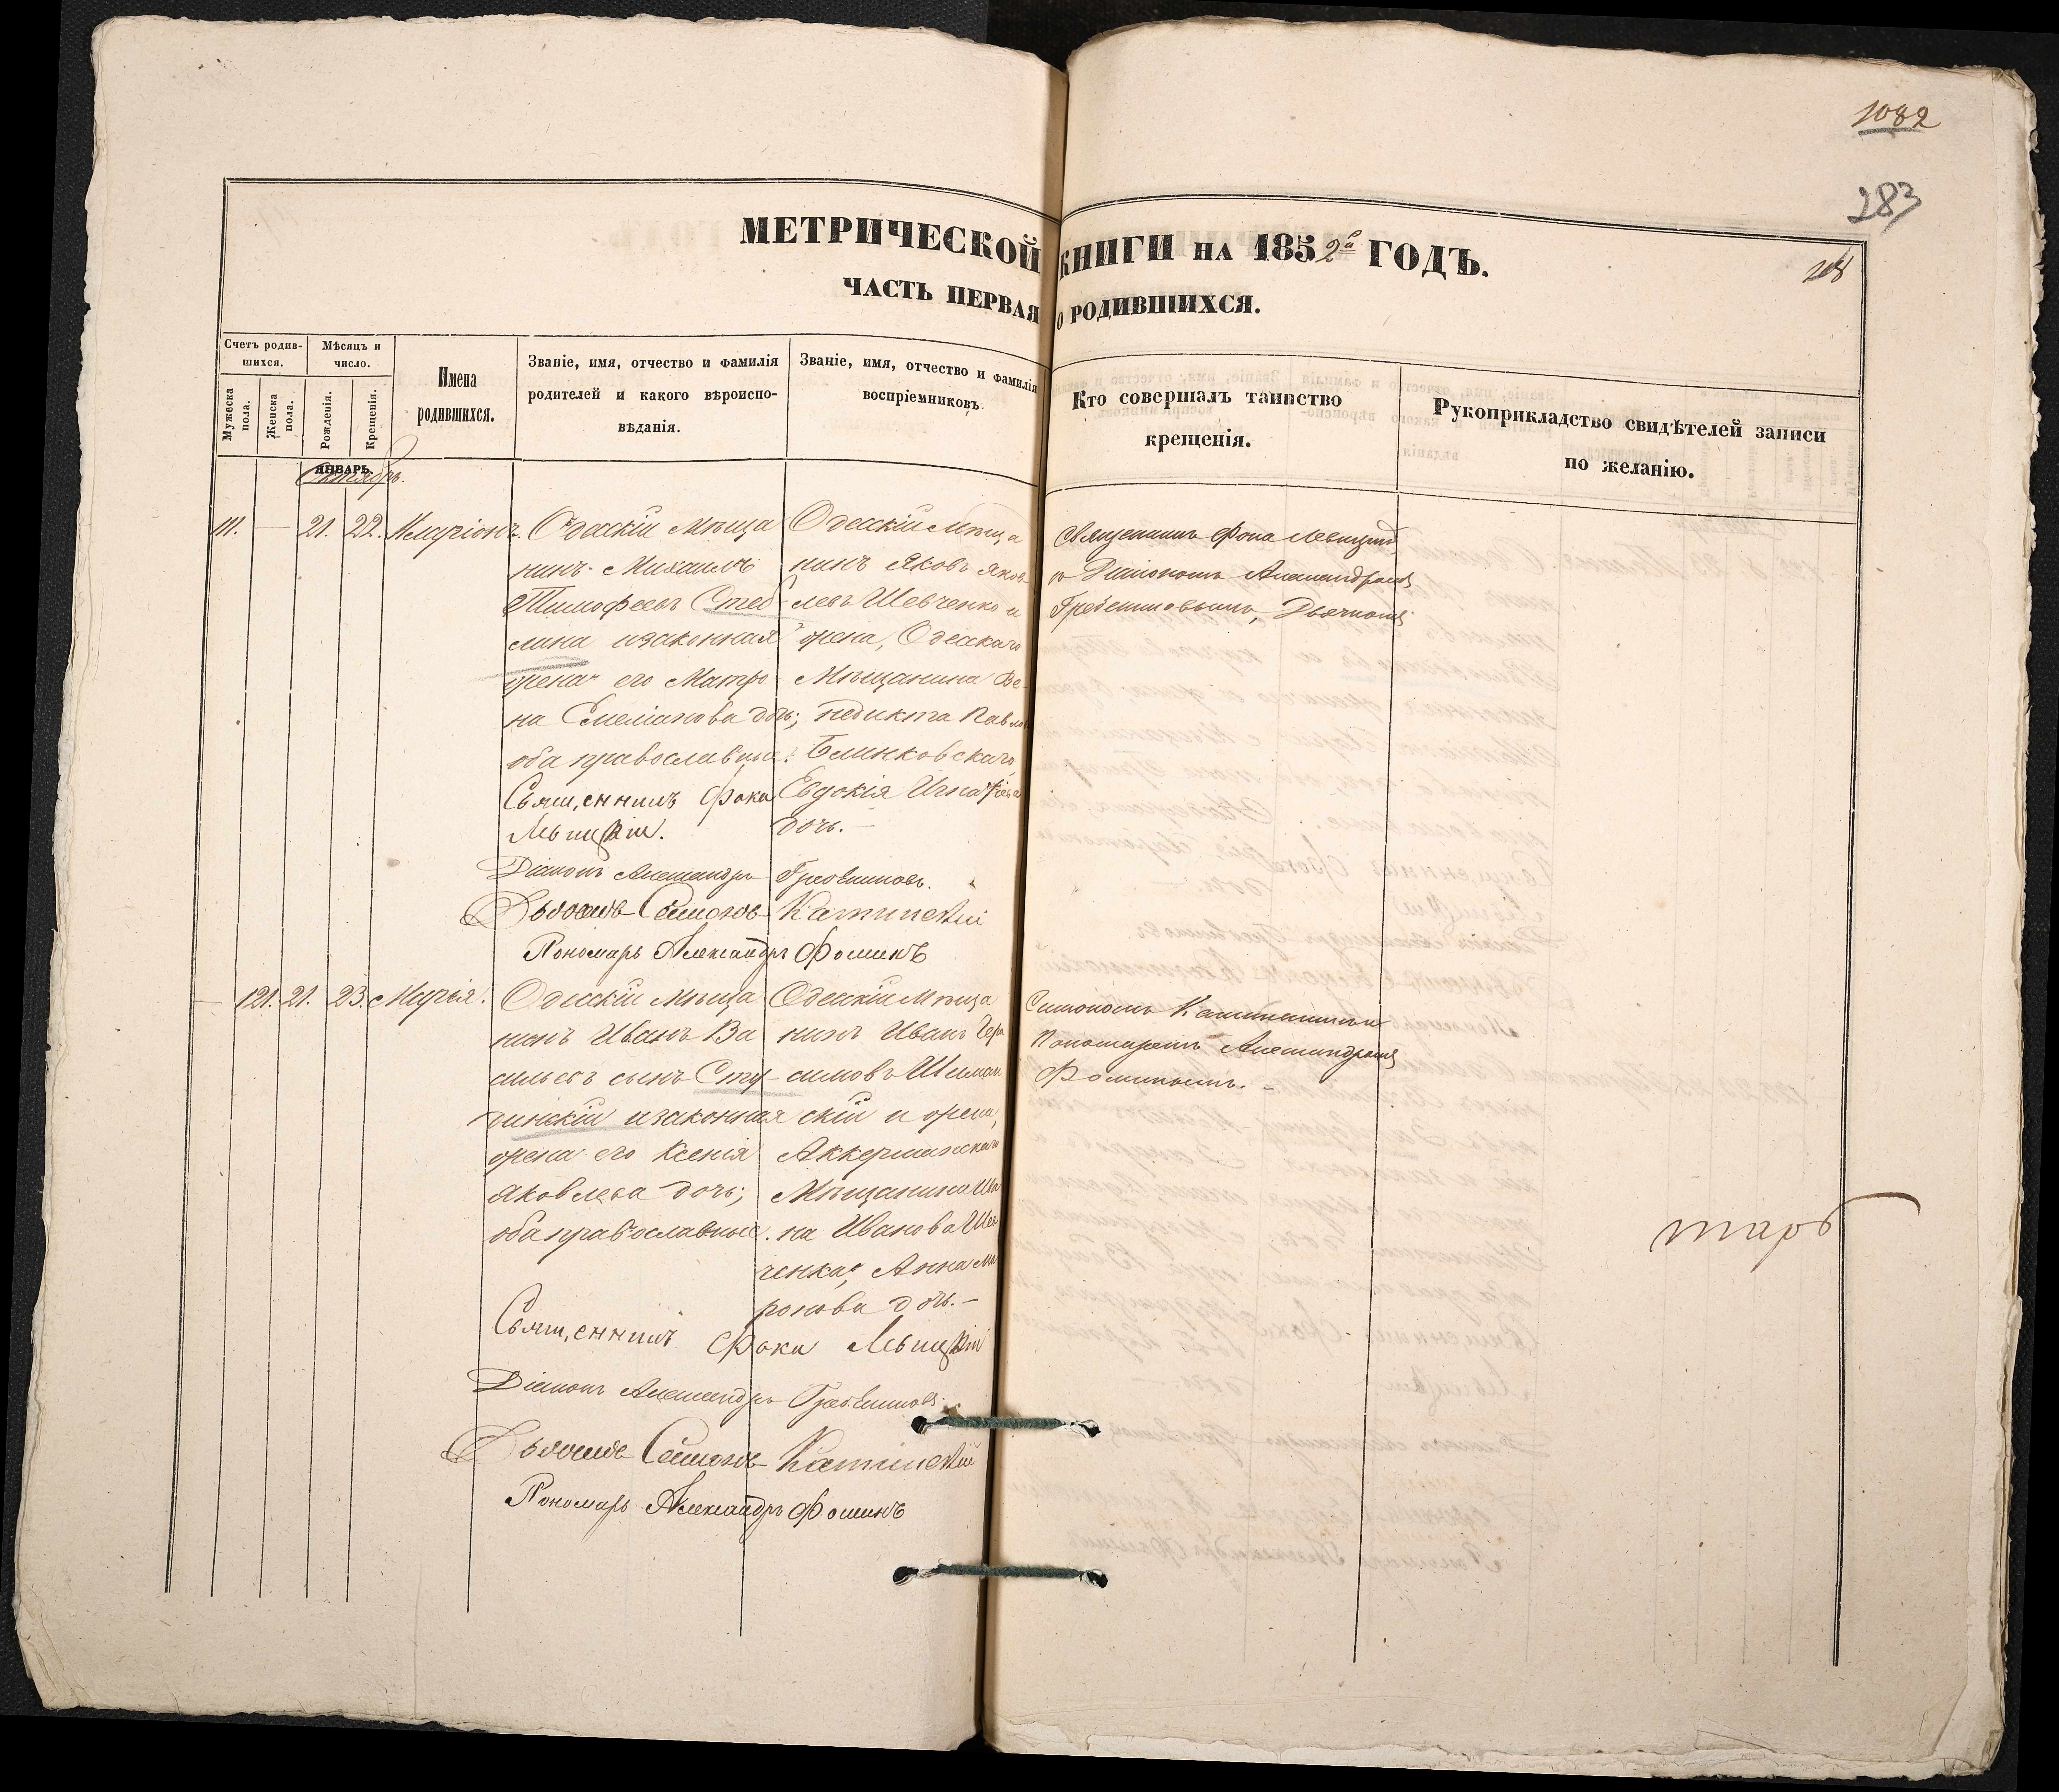 1082
283
МЕТРИЧЕСКОЙ КНИГИ НА 1852го ГОДЪ.
ЧАСТЬ ПЕРВАЯ О РОДИВШИХСЯ.
Счетъ родив-
шихся.
Мужеска пола.
Женска пола.
Мѣсяцъ и
число.
Рожденія.
Крещенія.
Имена
родившихся.
Званіе, имя, отчество и фамилія
родителей и какого вѣроиспо-
вѣданія.
Званіе, имя, отчество и фамилія
воспріемниковъ.
Кто совершалъ таинство
крещенія.
Рукоприкладство свидѣтелей записи
по желанію.
ЯНВАРЬ.
Октябрь.
111. — 21. 22. Иларіонъ.
Одесскій Мѣща
нинъ Михаилъ
Тимофеевъ Стеб-
лина изаконная
жена его Матро
на Емеліанова дочь;
оба православные.
Одесскій Мѣща
нинъ Яковъ Яков
левъ Шевченко и
жена, Одесскаго
Мѣщанина Ве-
недикта Павло
Блинковскаго,
Евдокія Игнатіева
дочь. —
Священникъ Фока Левицкій
съ Діакономъ Александромъ
Гребенниковымъ, Дьячкомъ
Священникъ Фока
Левицкій.
Діаконъ Александръ Гребенниковъ.
Дьячокъ Симонъ Катинскій
Пономарь Александръ Фоминъ
— 121. 21. 23. Марія.
Одесскій Мѣща
нинъ Иванъ Ва
сильевъ сынъ Сту-
динскій изаконная
жена его Ксенія
Яковлева дочь;
оба православные.
Одесскій Мѣща
нинъ Иванъ Гера
симовъ Шиман
скій и жена,
Аккерманскаго
Мѣщанина Ива
на Иванова Шев
ченка, Анна Ми
ронова дочь. —
Симономъ Катинскимъ и
Пономаремъ Александромъ
Фоминымъ. —
Священникъ Фока Левицкій
Діаконъ Александръ Гребенниковъ.
Дьячокъ Симонъ Катинскій
Пономарь Александръ Фоминъ